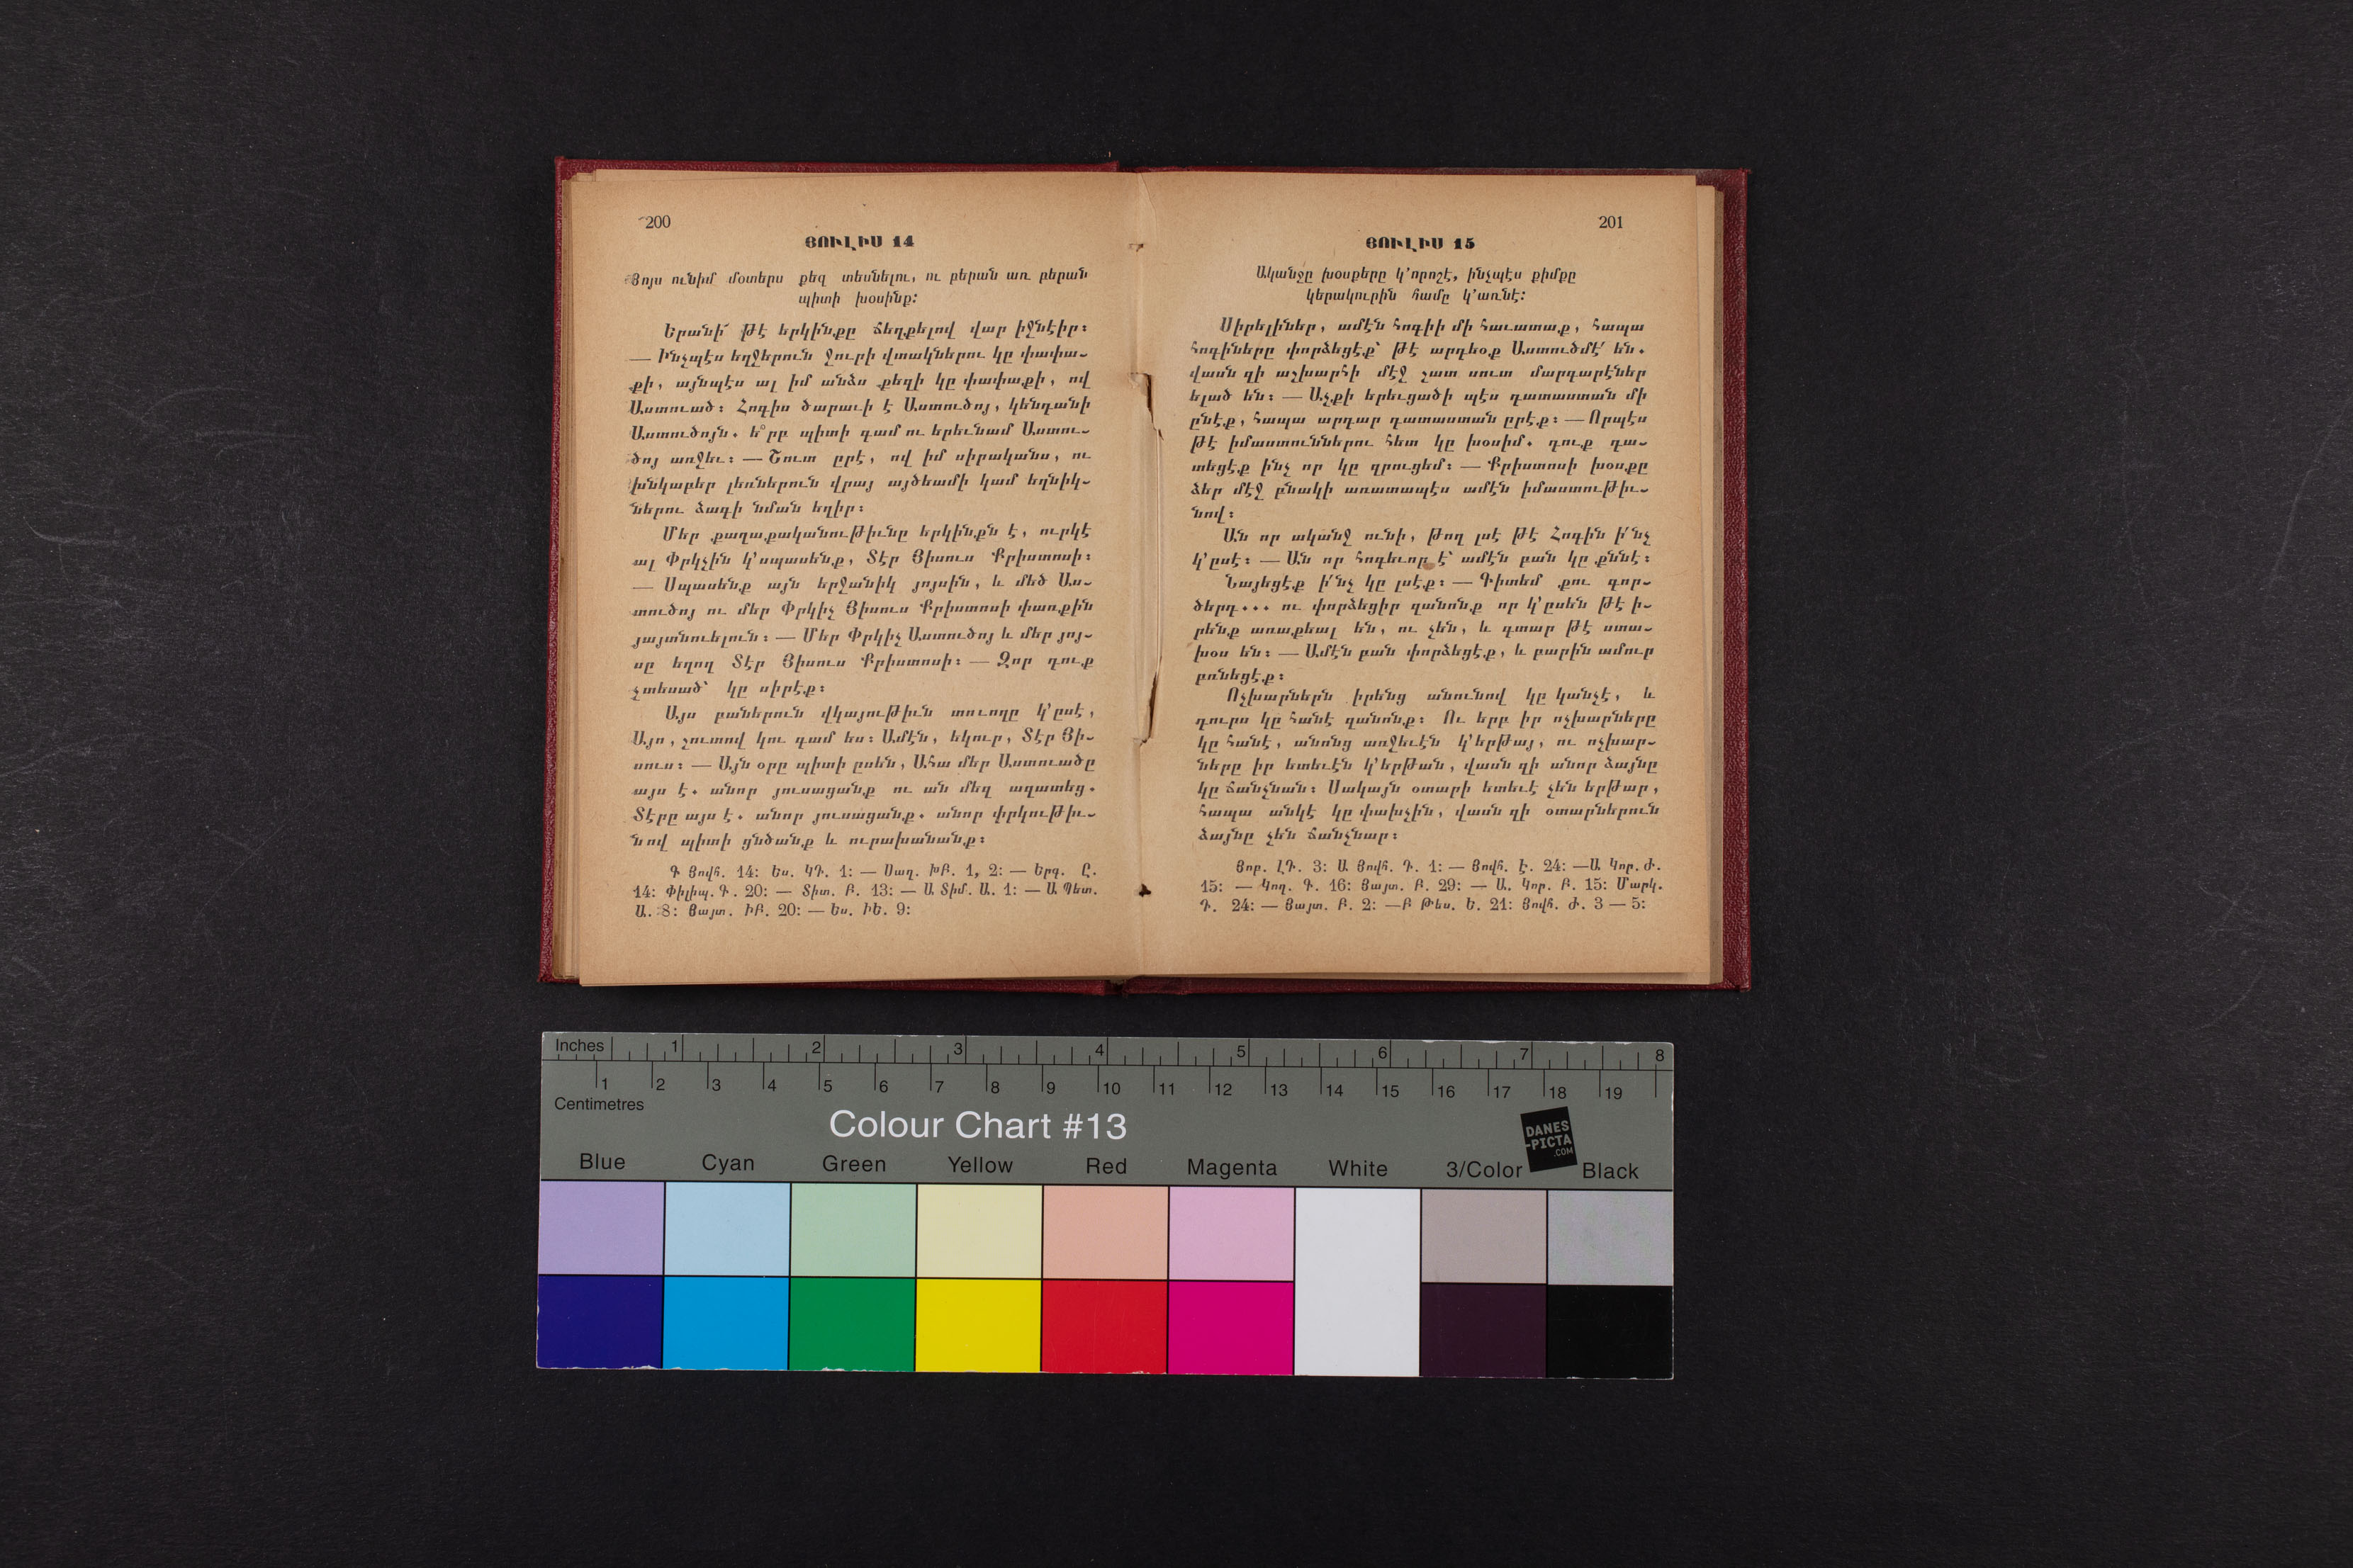 200
ՅՈՒԼԻՍ 14
Յոյս ունիմ մօտերս քեզ տեսնելու, ու բերան առ բերան
պիտի խօսինք:
Երանի՜ թէ երկինքը ճեղքելով վար իջնէիր:
— Ինչպէս եղջերուն ջուրի վտակներու կը փափա-
քի, այնպէս ալ իմ անձս քեզի կը փափաքի, ով
Աստուած: Հոգիս ծարաւի է Աստուծոյ, կենդանի
Աստուծոյն. ե՞րբ պիտի գամ ու երեւնամ Աստու-
ծոյ առջեւ: — Շուտ ըրէ, ով իմ սիրականս, ու
խնկաբեր լեռներուն վրայ այծեամի կամ եղնիկ-
ներու ձագի նման եղիր:
Մեր քաղաքականութիւնը երկինքն է, ուրկէ
ալ Փրկչին կ՚սպասենք, Տէր Յիսուս Քրիստոսի:
— Սպասենք այն երջանիկ յոյսին, և մեծ Աս-
տուծոյ ու մեր Փրկիչ Յիսուս Քրիստոսի փառքին
յայտնուելուն: — Մեր Փրկիչ Աստուծոյ և մեր յոյ-
սը եղող Տէր Յիսուս Քրիստոսի: — Զոր դուք
չտեսած՝ կը սիրէք:
Այս բաներուն վկայութիւն տուողը կ՚ըսէ,
Այո, շուտով կու գամ ես: Ամէն, եկուր, Տէր Յի-
սուս: — Այն օրը պիտի ըսեն, Ահա մեր Աստուածը
այս է. անոր յուսացանք ու ան մեզ ազատեց.
Տէրը այս է. անոր յուսացանք. անոր փրկութիւ-
նով պիտի ցնծանք և ուրախանանք:
Գ Յովհ. 14: Ես. ԿԴ. 1: — Սաղ. ԽԲ. 1, 2: — Երգ. Ը.
14: Փիլիպ. Գ. 20: — Տիտ. Բ. 13: — Ա Տիմ. Ա. 1: — Ա Պետ.
Ա. 8: Յայտ. ԻԲ. 20: — Ես. ԻԵ. 9:
201
ՅՈՒԼԻՍ 15
Ականջը խօսքերը կ՚որոշէ, ինչպէս քիմքը
կերակուրին համը կ՚առնէ:
Սիրելիներ, ամէն հոգիի մի հաւատաք, հապա
հոգիները փորձեցէք՝ թէ արդեօք Աստուծմէ՛ են.
վասն զի աշխարհի մէջ շատ սուտ մարդարէներ
ելած են: — Աչքի երեւցածի պէս դատաստան մի
ընէք, հապա արդար դատաստան ըրէք: — Որպէս
թէ իմաստուններու հետ կը խօսիմ. դուք դա-
տեցէք ինչ որ կը զրուցեմ: — Քրիստոսի խօսքը
ձեր մէջ բնակի առատապէս ամէն իմաստութիւ-
նով:
Ան որ ականջ ունի, թող լսէ թէ Հոգին ի՛նչ
կ՚ըսէ: — Ան որ հոգեւոր է՝ ամէն բան կը քննէ:
Նայեցէք ի՛նչ կը լսէք: — Գիտեմ քու գոր-
ծերդ... ու փորձեցիր զանոնք որ կ՚ըսեն թէ ի-
րենք առաքեալ են, ու չեն, և գտար թէ ստա-
խօս են: — Ամէն բան փորձեցէք, և բարին ամուր
բռնեցէք:
Ոչխարներն իրենց անունով կը կանչէ, և
դուրս կը հանէ զանոնք: Ու երբ իր ոչխարները
կը հանէ, անոնց առջեւէն կ՚երթայ, ու ոչխար-
ները իր ետեւէն կ՚երթան, վասն զի անոր ձայնը
կը ճանչնան: Սակայն օտարի ետեւէ չեն երթար,
հապա անկէ կը փախչին, վասն զի օտարներուն
ձայնը չեն ճանչնար:
Յոր. ԼԴ. 3: Ա Յովհ. Դ. 1: — Յովհ. Է. 24: —Ա Կոր. Ժ.
15: — Կող. Գ. 16: Յայտ. Բ. 29: — Ա. Կոր. Բ. 15: Մարկ.
Դ. 24: — Յայտ. Բ. 2: —Բ Թես. Ե. 21: Յովհ. Ժ. 3 — 5:
Inches 1 2 3 4 5 6 7 8
1 2 3 4 5 6 7 8 9 10 11 12 13 14 15 16 17 18 19
Centimetres
Colour Chart #13
DANES
-PICTA
.COM
Blue Cyan Green Yellow Red Magenta White 3/Color Black